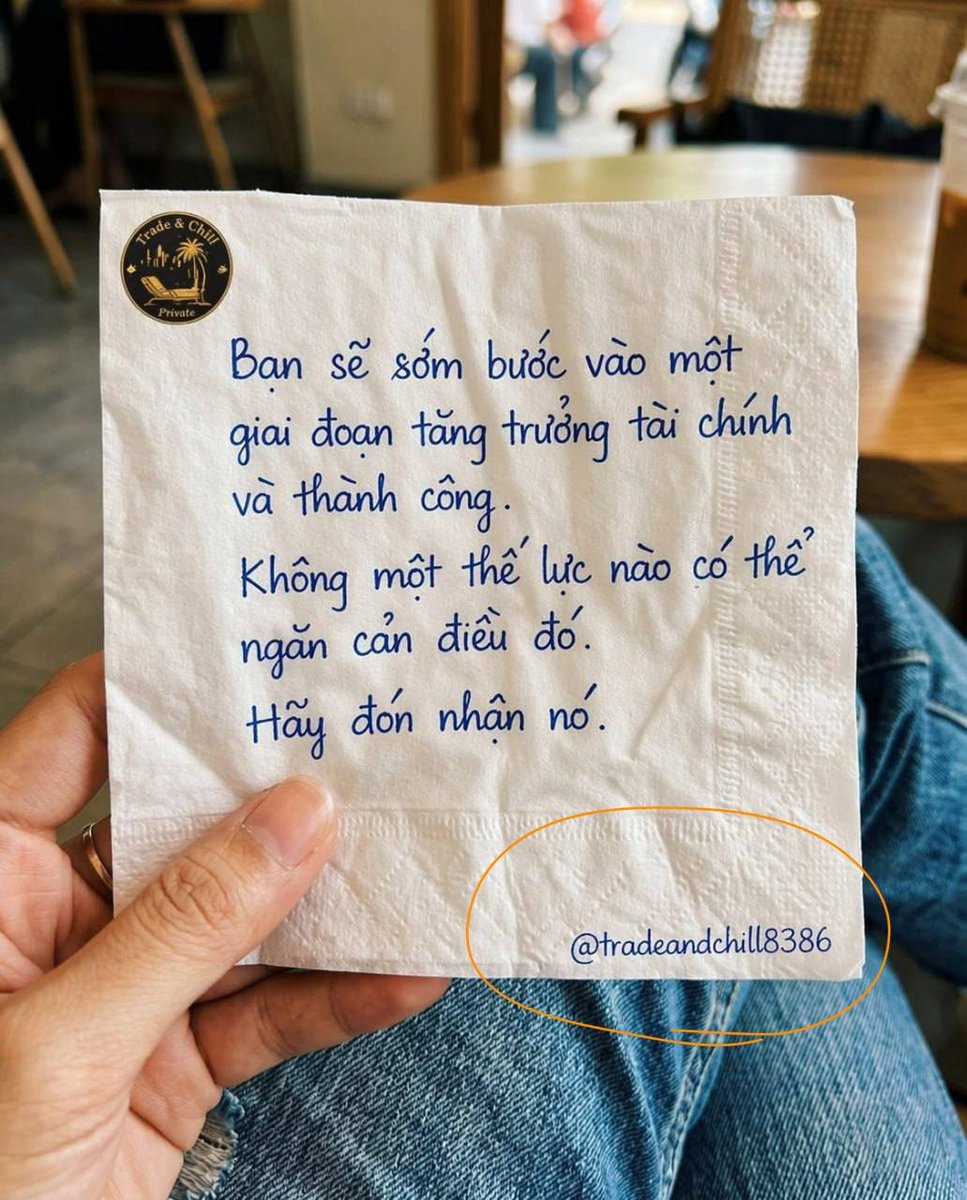 Trade & Chill
Private
Bạn sẽ sớm bước vào một
giai đoạn tăng trưởng tài chính
và thành công.
Không một thế lực nào có thể
ngăn cản điều đó.
Hãy đón nhận nó.
@tradeandchill8386